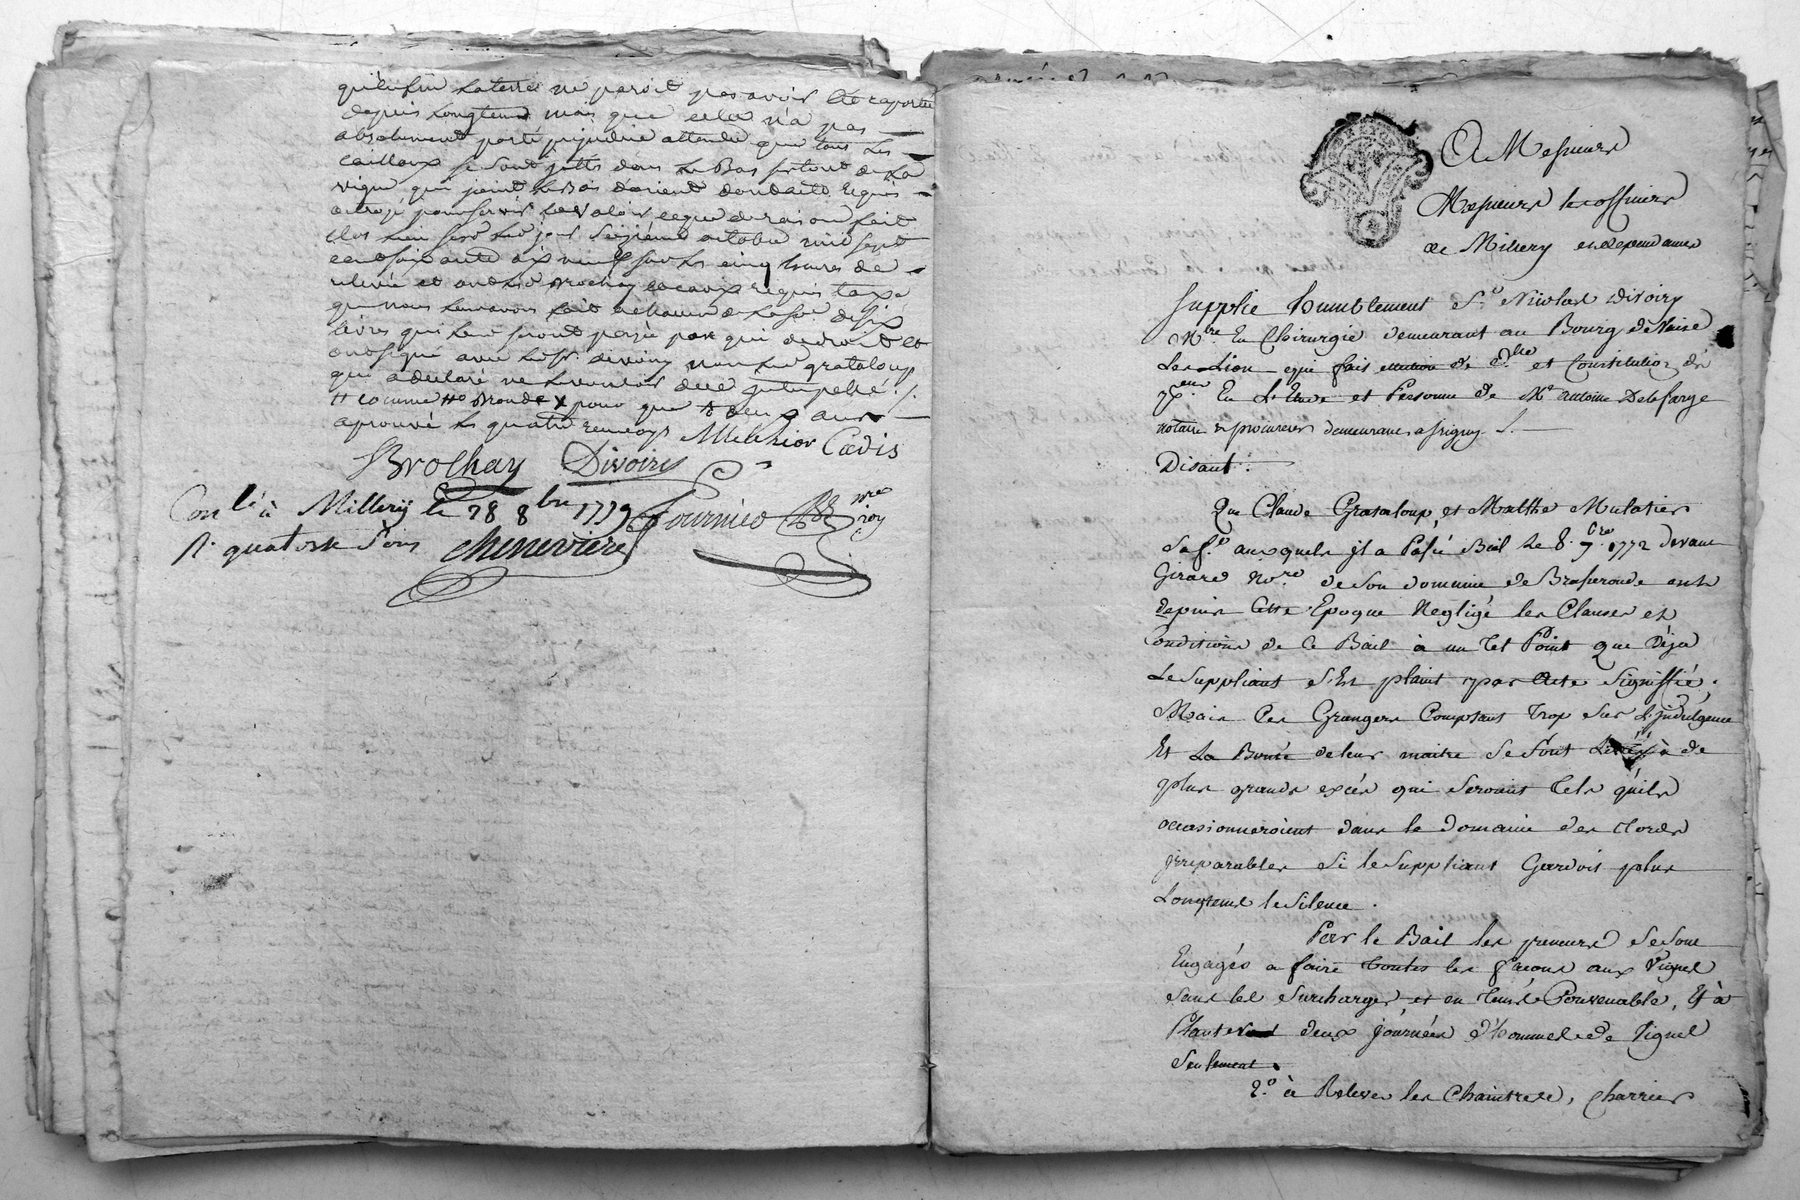 qu'enfin la terre ne paroit pas avoir été raportée
depuis longtems mais que cela n'a pas
absolument porté prejudice attendu que tous les
cailloux se sont jettés dans le Bas surtout de la
vigne qui joint le Bois d'orient dont acte requis
octroyé pour servir et valoir ce que de raison fait
clos lieu susd. led. jour seizieme octobre mil sept
cent soixante dix neuf sur les cinq heures de
relevée et ont led. Brochay et Cadix requis taxe
que nous leur avons fait de six
livres qui leur seront payé par qui de droit et
ont signé avec led. sr. Divoiry non led. grataloup
qui a declaré ne le vouloir de ce interpellé ./.
comme pour que deux ans
aprouvé les quatre renvoys Melchior Cadis
Brochay Divoiry
Con.lé à Millery le 28 8bre 1779 Fournier nre roy
R. quatorze sous Chenevriere
A Messieurs
Messieurs les officiers
de Millery et dependances
Supplie humblement S.r Nicolas Divoiry
M.tre En Chirurgie demeurant au Bourg de Vaise
Les Lion qui fait election de d.lle et Constitution de
p.eur En L'Etude et Personne de M.e antoine Delafarge
notaire & procureur demeurant a Irigny /.
Disant :
Que Claude Grataloup, et Malthe Mulatier
Sa f.e auxquels il a Passé Bail le 8. 7.bre 1772 devant
Girard No.re de son domaine de Brasseronde ont
depuis Cette Epoque Negligé les Clauses et
Conditions de Ce Bail à un tel Point que Déja
Le Suppliant s'Est plaint par Acte Signiffié,
Mais Ces Grangers Comptant trop sur L'Jndulgence
Et La Bonté de leur maitre Se Sont Livrés à de
plus grands excés qui Seroient tels qu'ils
occasionneroient dans le domaine des tords
jrreparables Si le Suppliant Gardoit plus
Longtems le Silence .
Par le Bail les preneurs Se Sont
Engagés a faire toutes les façons aux Vignes
sans les Surcharger et en tems Convenable, Et à
Planter deux journées d'hommes de Vignes
Seulement .
2.o à Relever les Chaintres, Charrier